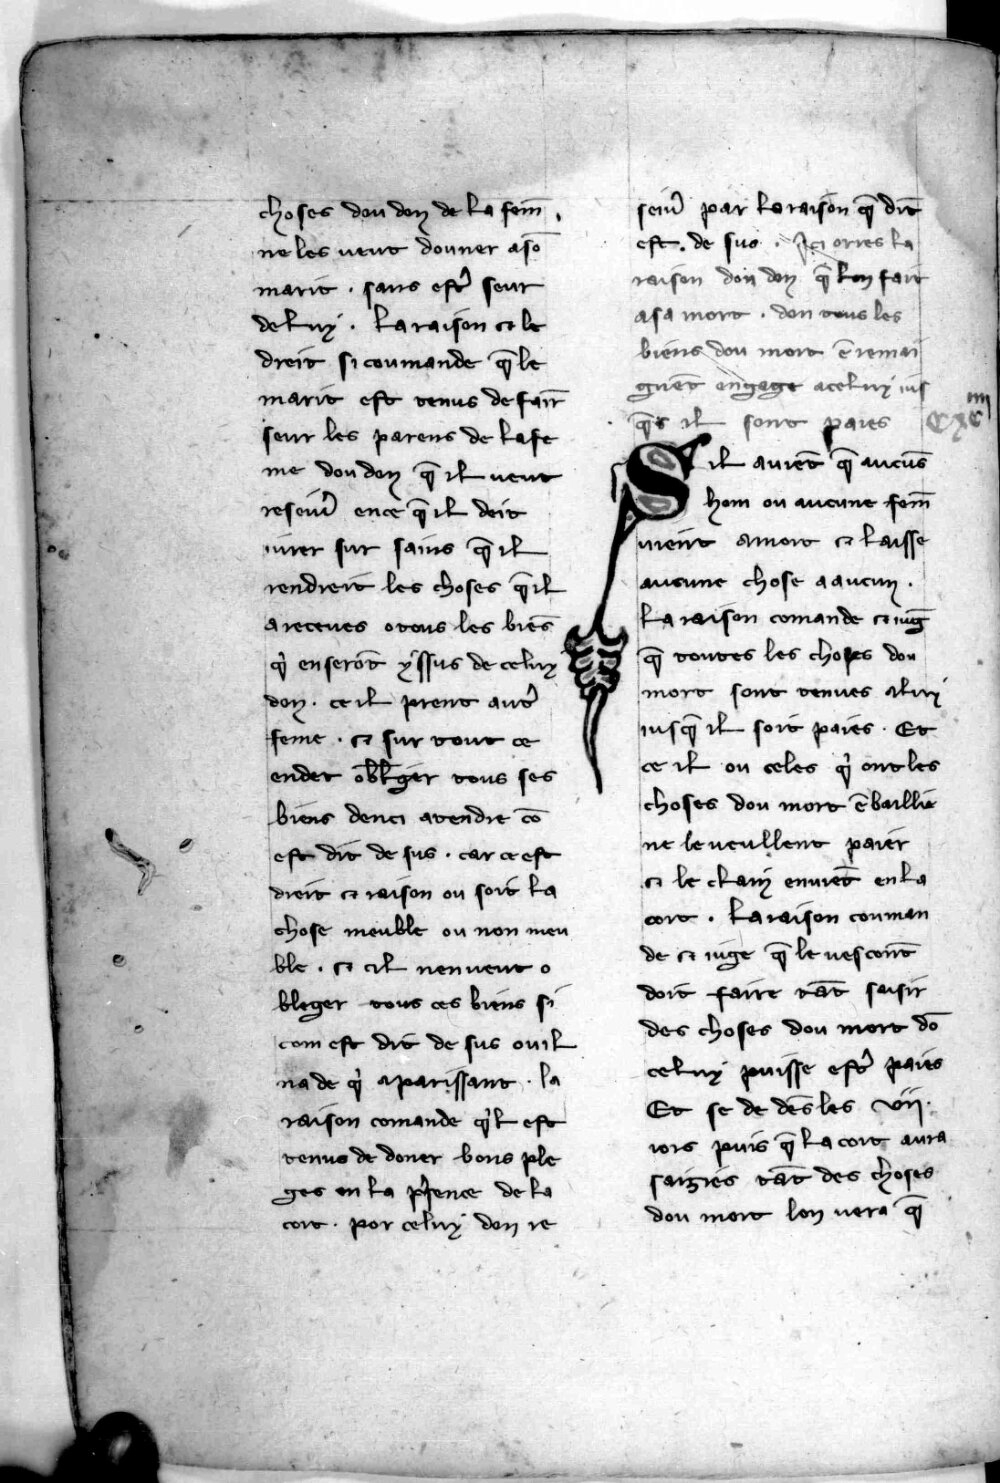 choses dou don de la fem̄
ne les veut douner a sō
marit . sans estr̉ seur
de luy . La raison et le
dreit si coumande q̄ le
marit est tenus de fair̄
seur les parens de la fe
me dou don q̄ il veut
reseiur̉ en ce q̄ il deit
iurer sur sains q̄ il
rendreit les choses q̄ il
a receues o tous les biēs
q̉ en serōt yssus de celuy
don . ce il prent autr̉
feme . et sur tout ce
en det obliger tous ses
biens denci atendre cō
est dit de sus . car ce est
dreit et raison ou soit la
chose meuble ou non meu
ble . et cil nen veut o
bleger tous ces biens si
com est dit de sus ou il
na de q̉ aparissant . la
raison comande q̉l est
tenus de doner bons ple
ges en la p̉sence de la
cort . por celuy don re
seiur̉ par la raison q̄ dit
est . de sus . Ici orres la
raison dou don q̄ lon fait
a sa mort . don tous les
biens dou mort ē remai
gnēt engage a celuy ius
q̄s il sont paies
cxc iiii
Sil auiēt q̄ aucūs
hom ou aucune fem̄
uient a mort et laisse
aucune chose a aucun .
La raison comande et iuḡ
q̄ toutes les choses dou
mort sont tenues a luy
iusq̄ il soit paies . Et
ce il ou celes q̉ ont les
choses dou mort ē baillie
ne le veullent paier
et le claim en uiēt en la
cort . La raison couman
de et iuge q̄ le uescont̄
doit faire tāt saisir
des choses dou mort dō
celuy puisse estr̉ paies
Et se de dēs les vii .
iors puis q̄ la cort aura
saizies tāt des choses
dou mort lon uera q̄